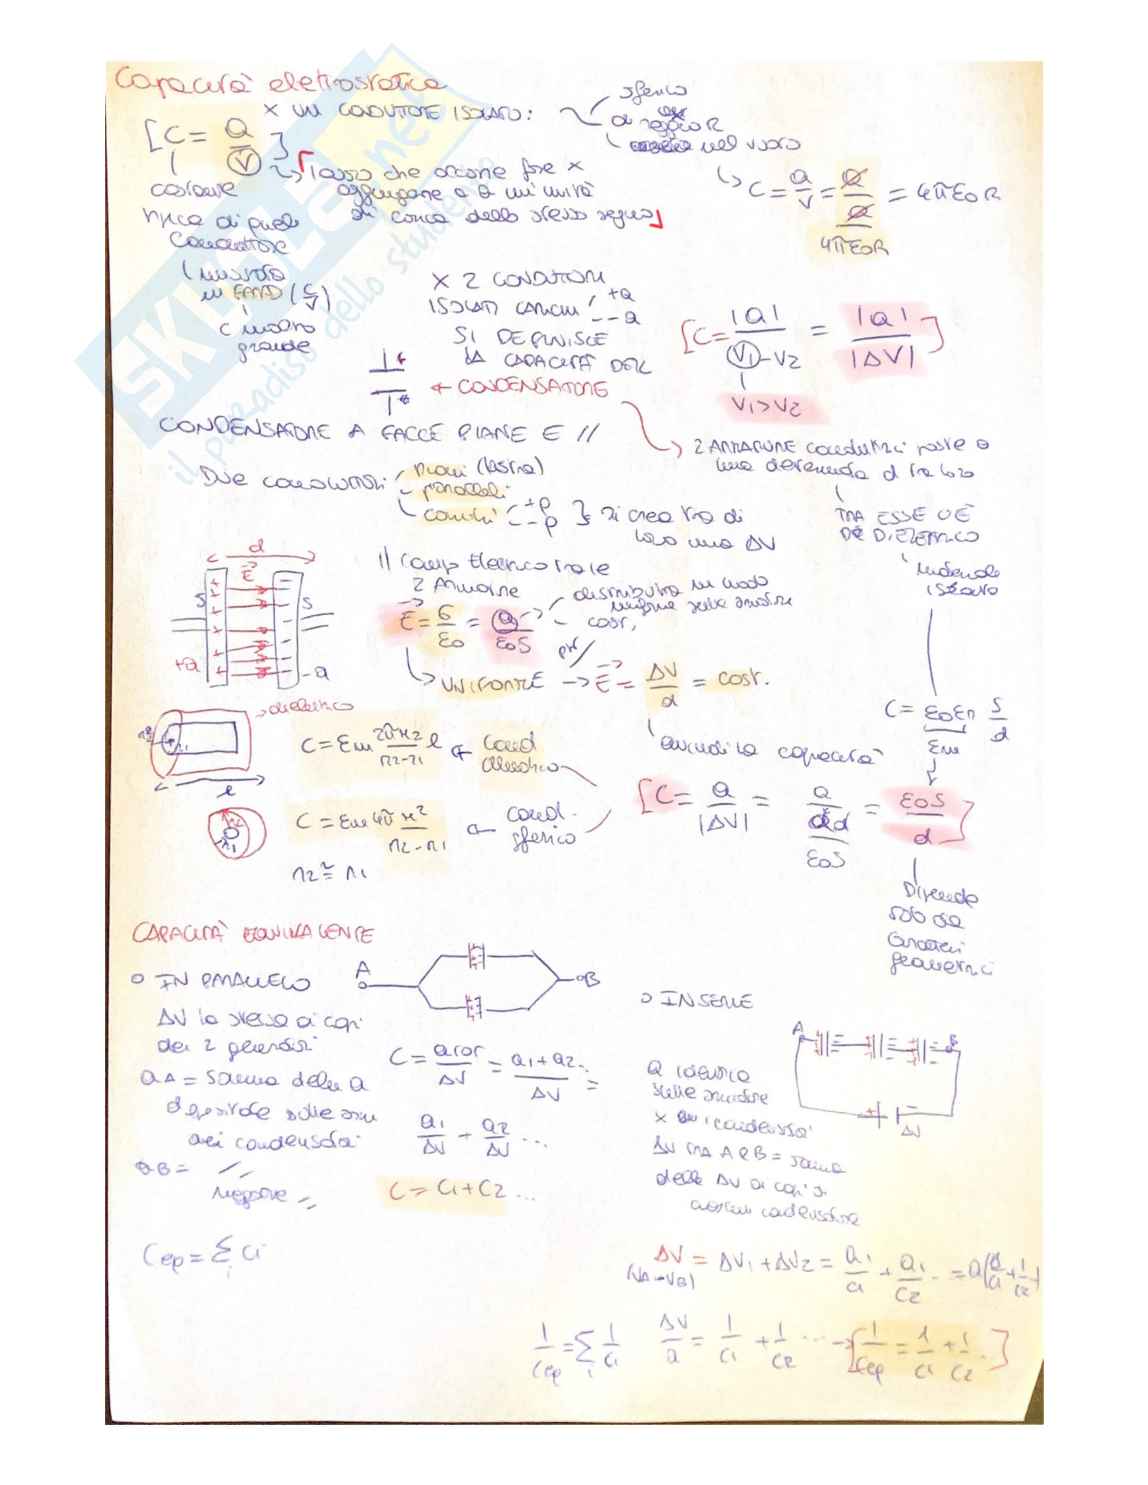 Capacità elettrostatica
x UN CONDUTTORE ISOLATO:
sferico
di raggio R
nel vuoto
[C = Q/V]
costante
tipica di quel
conduttore
misurata
in FARAD (C/V)
C molto
grande
lavoro che occorre fare x
aggiungere a Q un'unità
di carica dello stesso segno
C = Q/V = Q/(Q/4πε0R) = 4πε0R
x 2 CONDUTTORI
ISOLATI CARICHI +Q
-Q
SI DEFINISCE
LA CAPACITÀ DEL
CONDENSATORE
[C = |Q|/(V1-V2) = |Q|/|ΔV|]
V1>V2
CONDENSATORE A FACCE PIANE E //
2 ARMATURE conduttrici poste a
una distanza d tra loro
TRA ESSE C'È
DIELETTRICO
materiale
isolante
Due conduttori
piani (lastra)
paralleli
carichi +ρ
-ρ
si crea tra di
loro una ΔV
d
E
S
S
+Q
-Q
Il campo elettrico tra le
2 armature
E = σ/ε0 = Q/ε0S
distribuita in modo
uniforme sulle armature
cost.
UNIFORME → E = ΔV/d = cost.
quindi la capacità
C = ε0εr S/d
εm
[C = Q/|ΔV| = Q/(Qd/ε0S) = ε0S/d]
Dipende
solo da
caratteri
geometrici
dielettrico
r2
r1
l
C = εm 2πr2/(r2-r1) l
cond.
cilindrico
r2
r1
C = εm 4πr²/(r2-r1)
cond.
sferico
r2 ≅ r1
CAPACITÀ EQUIVALENTE
o IN PARALLELO
A
B
ΔV la stessa ai capi
dei 2 generatori
QA = somma delle Q
depositate sulle arm
dei condensatori
QB = //
negative //
C = Qtot/ΔV = Q1+Q2../ΔV =
Q1/ΔV + Q2/ΔV ...
C = C1+C2 ...
Ceq = Σi Ci
o IN SERIE
A
B
ΔV
Q identica
sulle armature
x ogni condensat.
ΔV tra A e B = somma
delle ΔV ai capi di
ciascun condensatore
ΔV = ΔV1 + ΔV2 = Q1/C1 + Q1/C2 .. = Q(1/C1 + 1/C2 +
(VA-VB)
1/Ceq = Σi 1/Ci
ΔV/Q = 1/C1 + 1/C2 ... → [1/Ceq = 1/C1 + 1/C2 ..]
SKUOLA.net
il paradiso dello studente